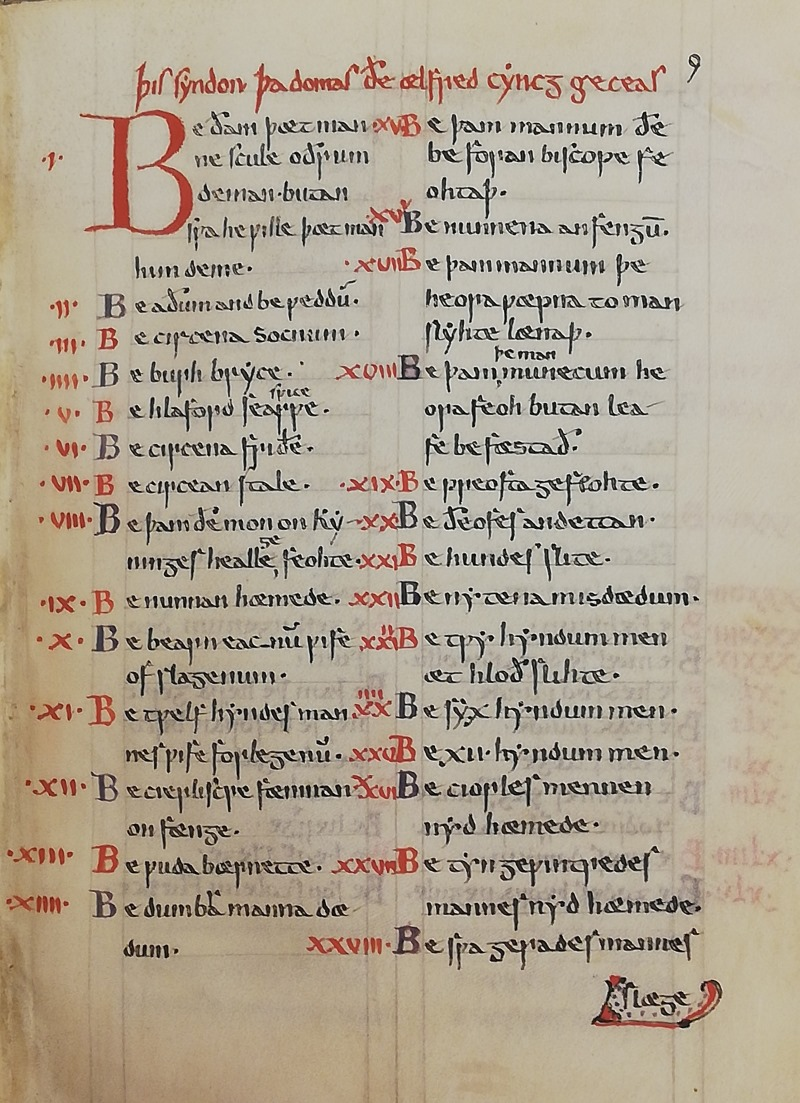 þis syndon þa domas ðe ælfred cyncg geceas
9
·I· Be ðam þæt man
ne scule oðrum
deman·butan
sƿa he ƿille þæt man
him deme·
·II· Be aðum and be ƿeddū·
·III· Be circena socnum·
·IIII· Be burh bryce·
sƿice
·V· Be hlaford searƿe·
·VI· Be circena friðe·
·VII· Be circean stale·
·VIII· Be þam ðe mon on ky
ninges healle, ge feohte·
·IX· Be nunnan hæmede·
·X· Be bearn eac-nū ƿife
ofslagenum·
·XI· Be tƿelf hyndes man
nes ƿife forlegenū·
·XII· Be cierliscre fæmnan
onfænge·
·XIII· Be ƿuda bærnette·
·XIIII· Be dumbra manna dæ
dum·
·XV Be þam mannum ðe
beforan biscope fe
ohtaþ·
·XVI Be nunnena anfengū·
·XVII Be þam mannum þe
heora ƿæpna to man
slyhte lænaþ·
þe man
XVIII Be þam, munecum he
ora feoh butan lea
fe befæstað·
·XIX· Be preosta gefeohte·
·XX Be ðeofes andettan·
·XXI Be hundes slite·
XXII Be nytena misdædum·
XXIII Be tƿy·hyndum men
æt hloð slihte·
XXIIII Be syx hyndum men·
XXV Be XII· hyndum men·
XXVI Be ciorles mennen
nyd hæmede·
XXVII Be tyn geƿintredes
mannes nyd hæmede·
XXVIII· Be sƿa gerades mannes
slæge